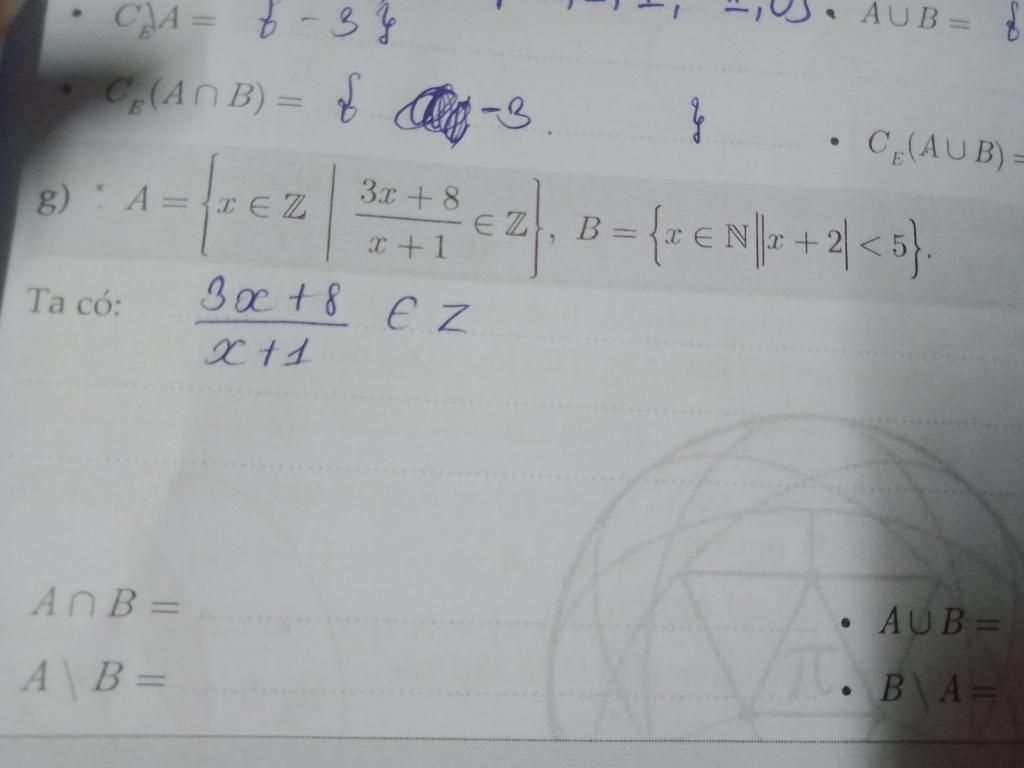 • C_E A = { - 3 } • A ∪ B = {
• C_E(A ∩ B) = { -3 } • C_E(A ∪ B) =
g) A = {x ∈ ℤ | (3x + 8)/(x + 1) ∈ ℤ}, B = {x ∈ ℕ||x + 2| < 5}.
Ta có: (3x + 8)/(x + 1) ∈ Z
A ∩ B = • A ∪ B =
A \ B = • B \ A =
π